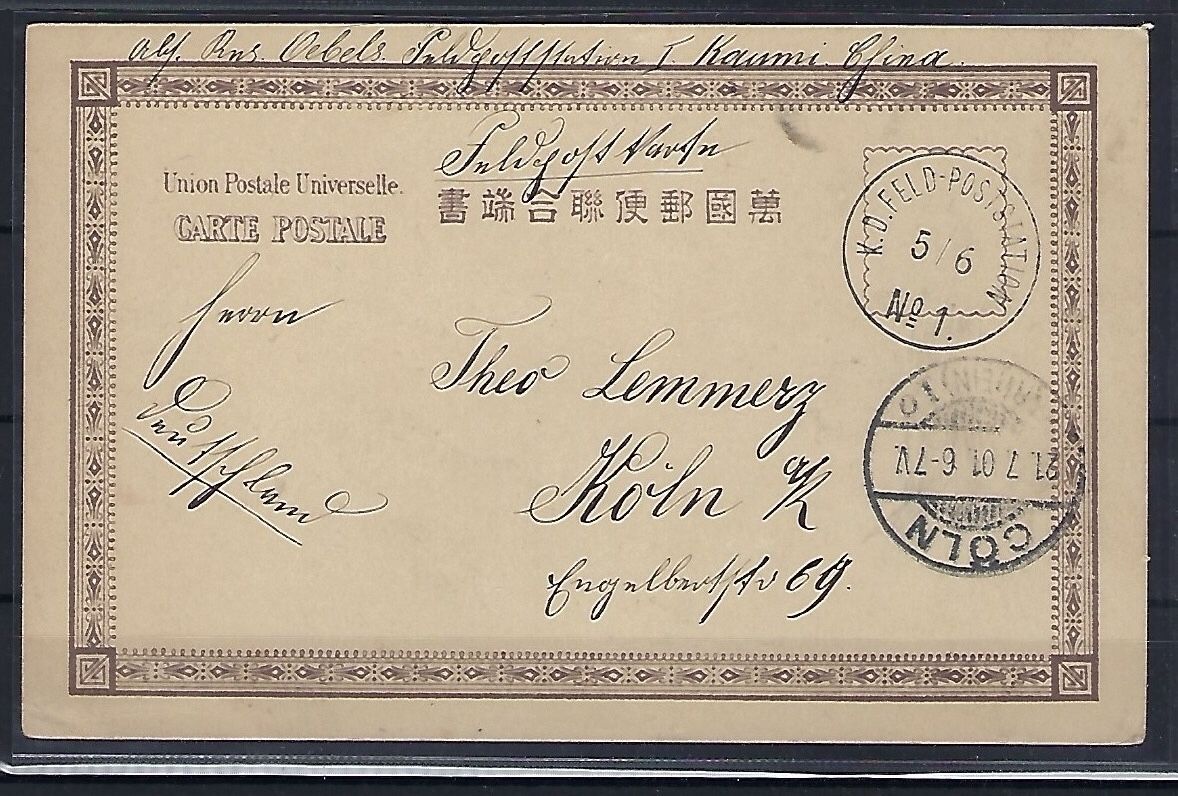 Abs. Rns. Oebels. Feldpoststation I. Kaumi. China.
Feldpostkarte
Union Postale Universelle.
CARTE POSTALE
萬國郵便聯合端書
K.D. FELD-POSTSTATION
5/6
No 1.
Herrn
Theo Lemmerz
Köln a/R
Engelbertstr 69.
Deutschland
CÖLN
21. 7. 01. 6-7V.
(RHEIN) 1